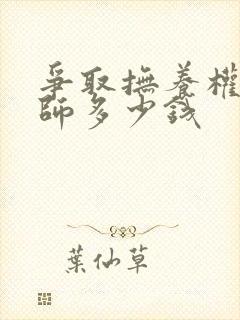 爭取撫養權
師多少錢
葉仙草